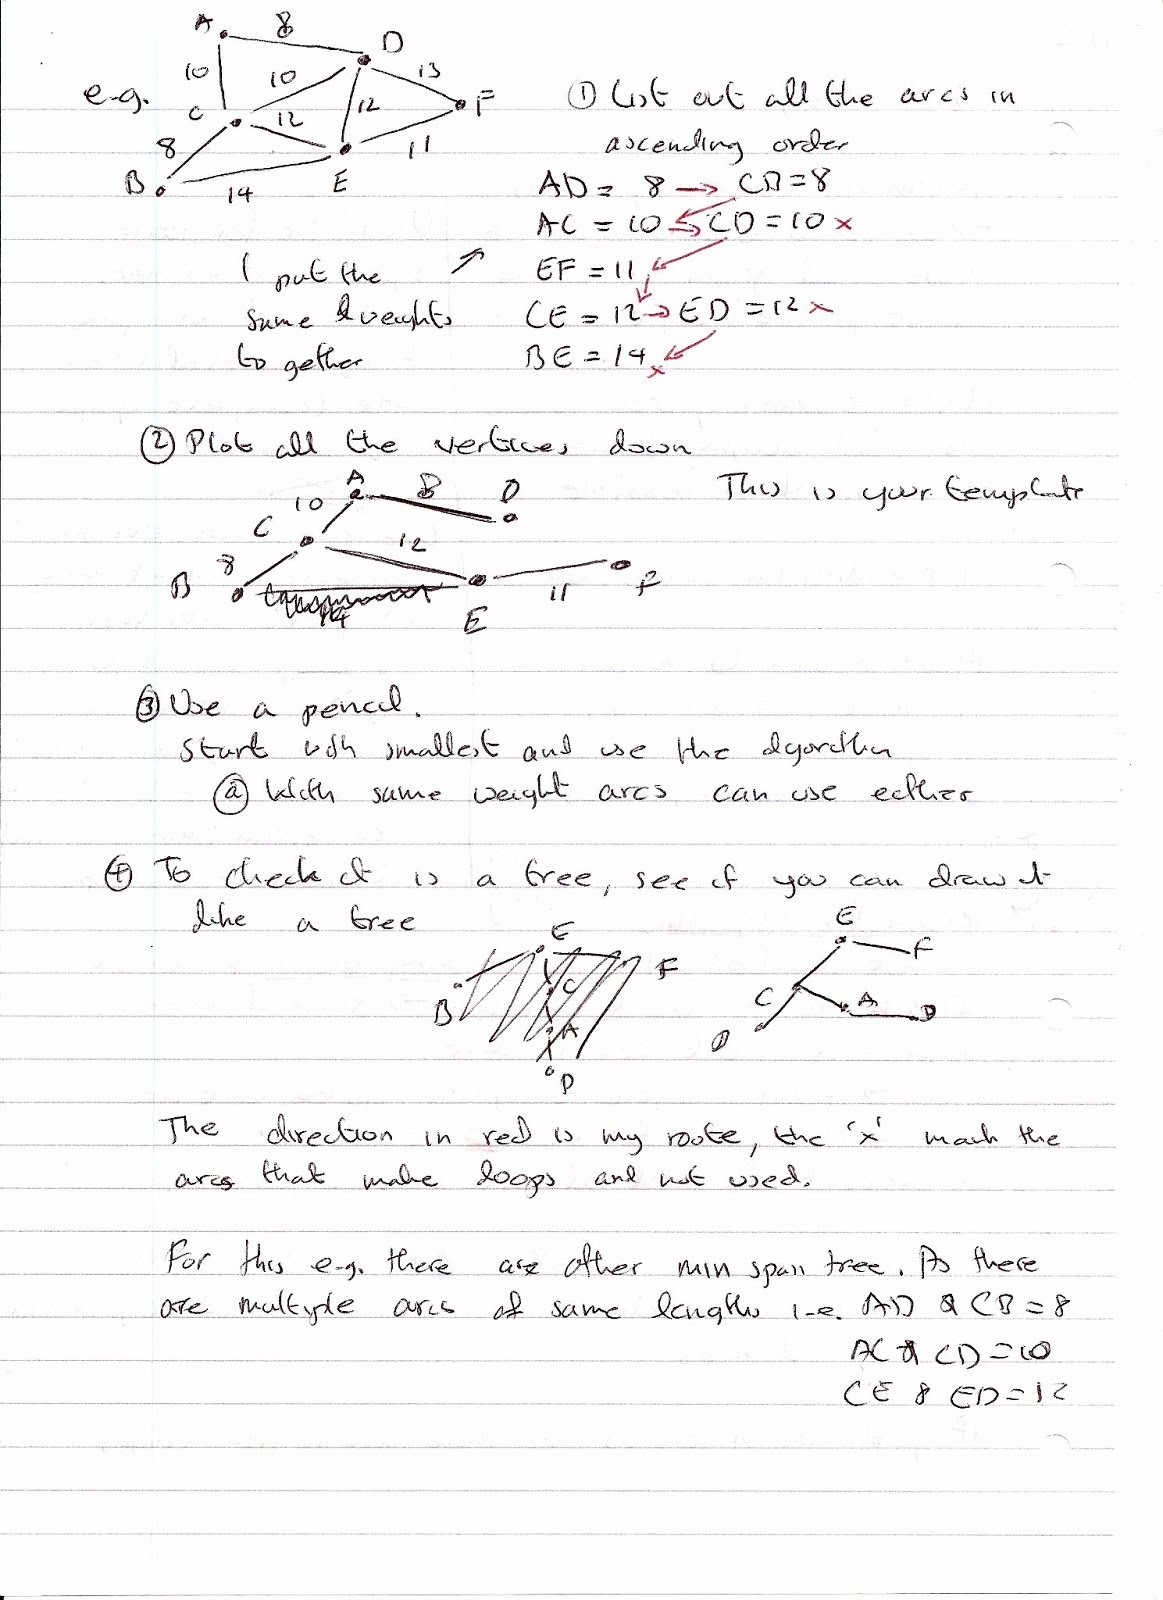 A 8 D
10 10 13
e.g. C 12 12 F
8 11
B 14 E
① List out all the arcs in
ascending order
AD = 8 → CB = 8
AC = 10 → CD = 10 x
EF = 11
CE = 12 → ED = 12 x
BE = 14 x
I put the
same weights
to gether
② Plot all the vertices down
This is your template
A 8 D
10
C 12
B 8 F
14 11
E
③ Use a pencil.
Start with smallest and use the algorithm
ⓐ With same weight arcs can use either
④ To check it is a tree, see if you can draw it
like a tree
E F
B C
A
D
E F
C A D
The direction in red is my route, the 'x' mark the
arcs that make loops and not used.
For this e.g. there are other min span tree. As there
are multiple arcs of same lengths i.e. AD & CB = 8
AC & CD = 10
CE & ED = 12